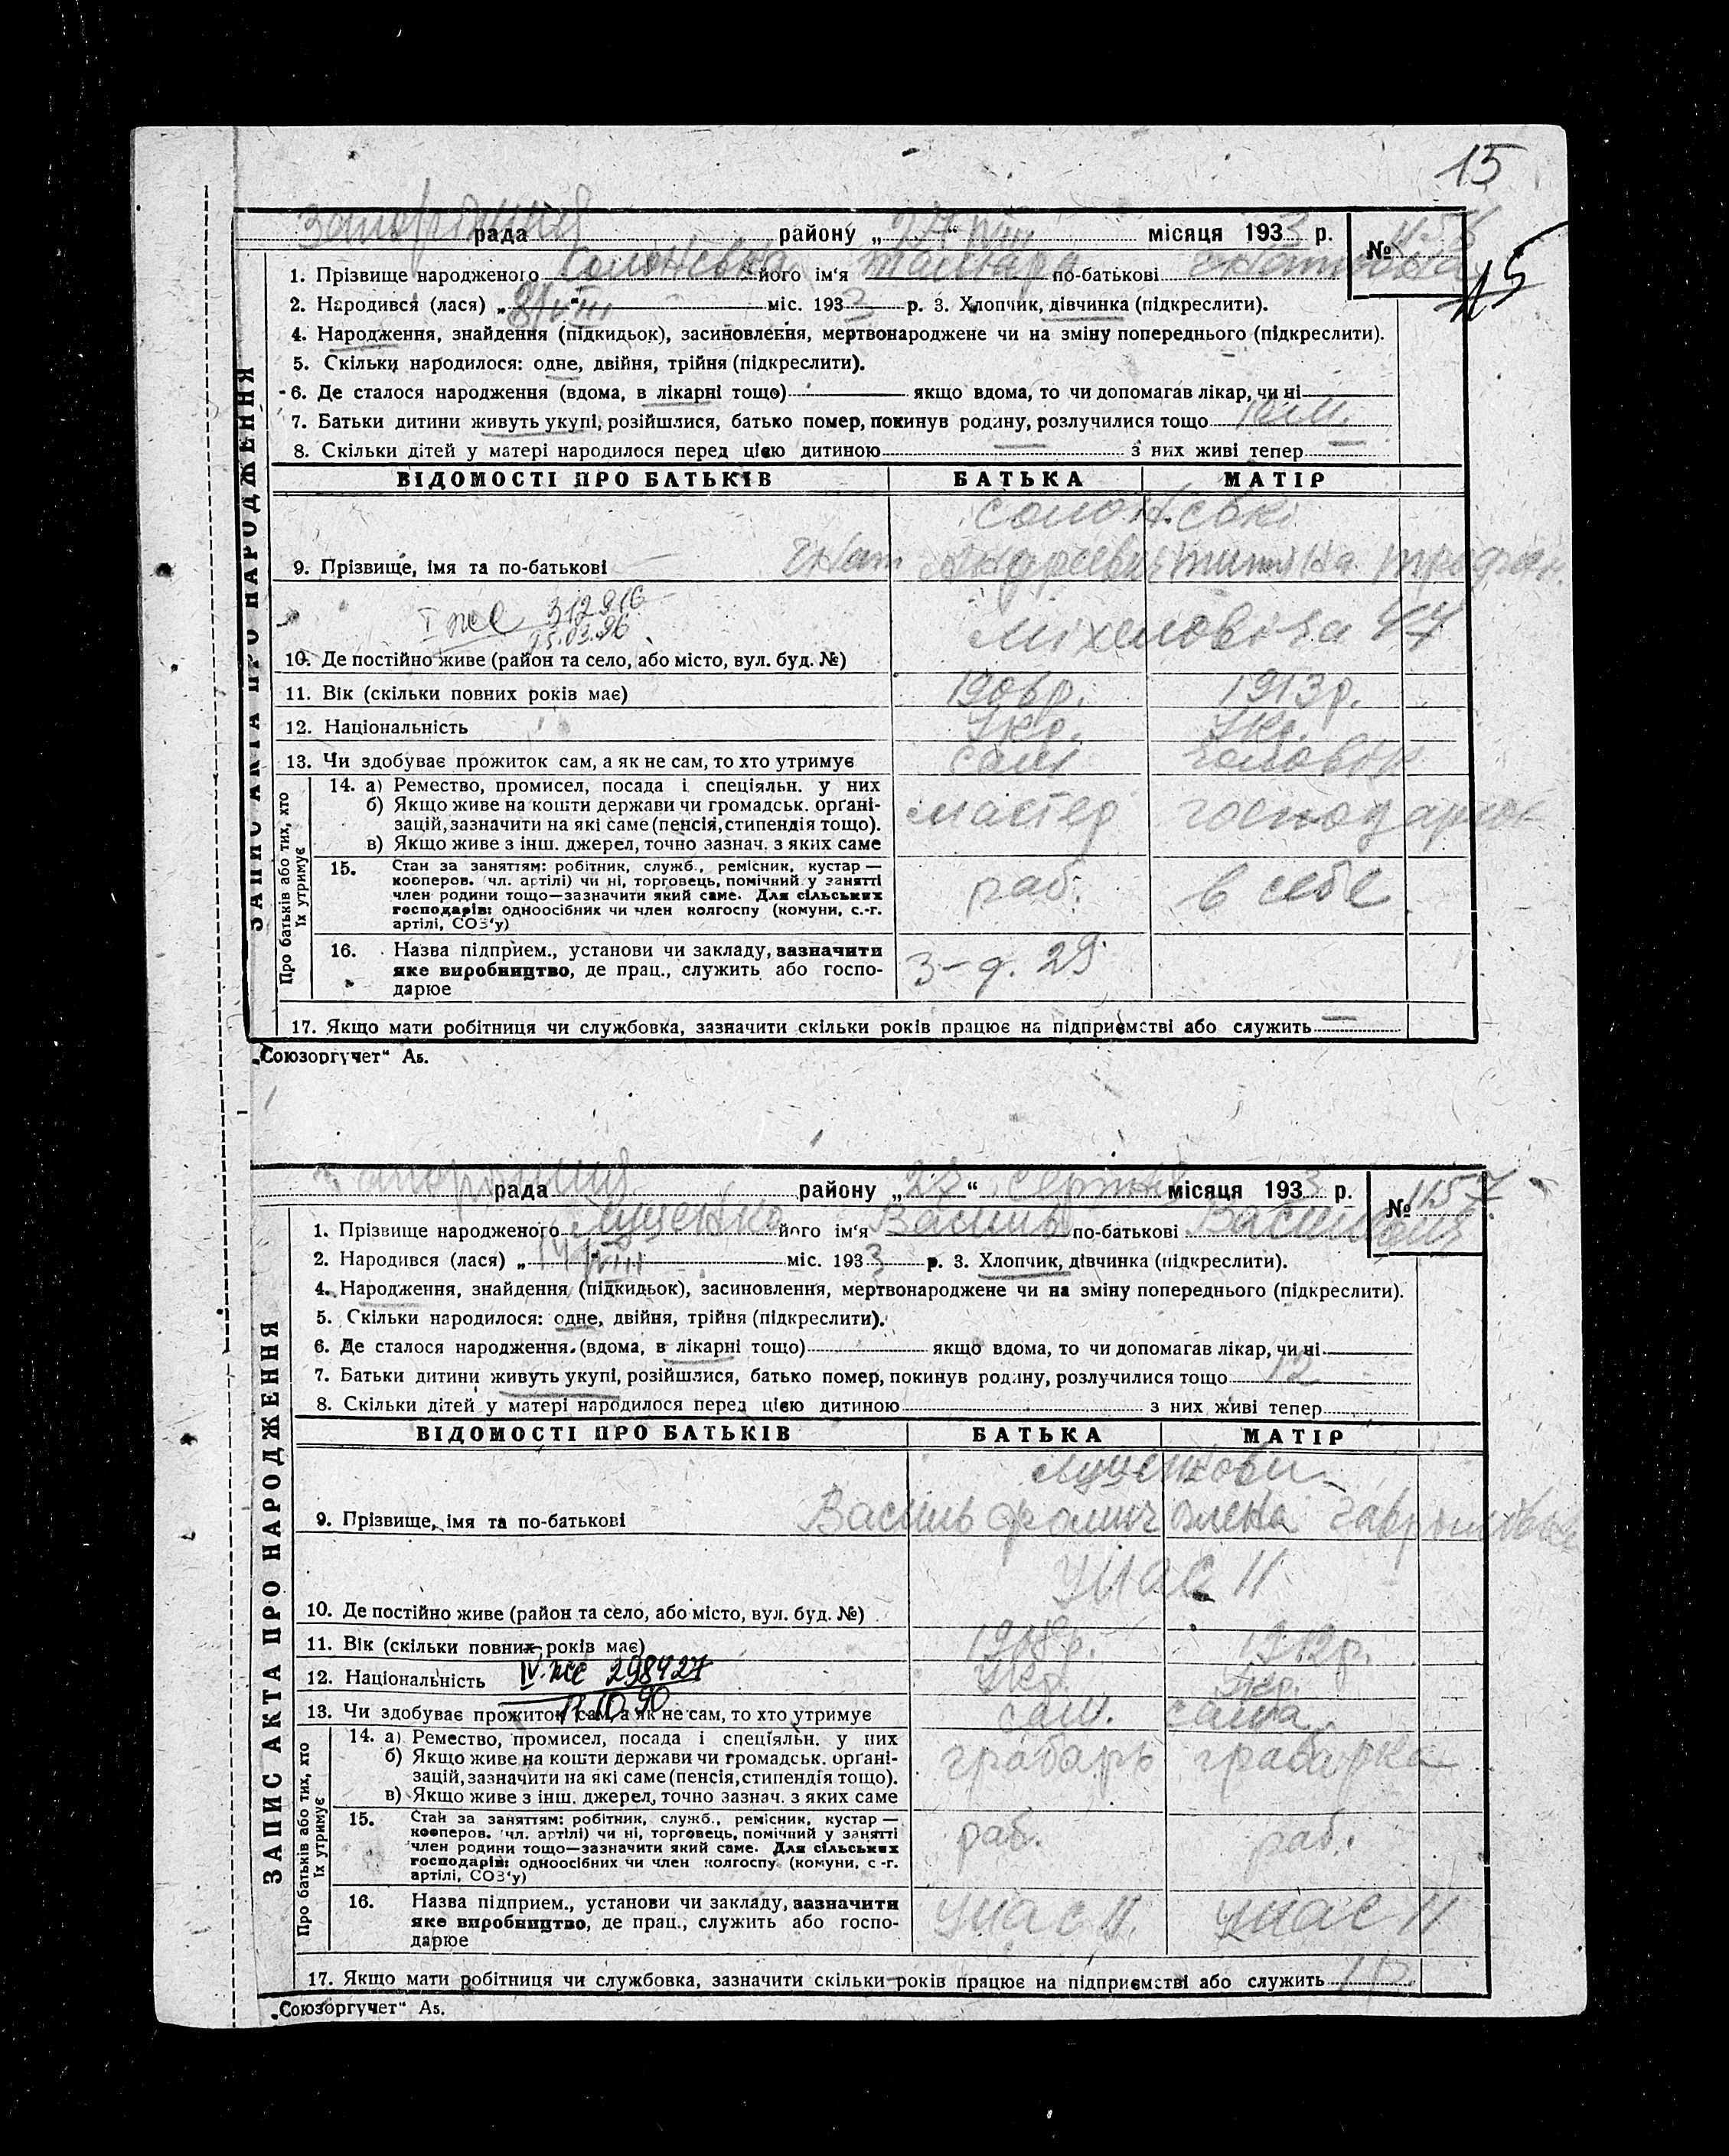 15
рада району „ 27 VIII “ місяця 193 3 р. № 1156
15
1. Прізвище народженого його ім'я Тамара по-батькові
2. Народився (лася) „ VIII міс. 193 3 р. 3. Хлопчик, дівчинка (підкреслити).
4. Народження, знайдення (підкидьок), засиновлення, мертвонароджене чи на зміну попереднього (підкреслити).
5. Скільки народилося: одне, двійня, трійня (підкреслити).
6. Де сталося народження (вдома, в лікарні тощо) якщо вдома, то чи допомагав лікар, чи ні
7. Батьки дитини живуть укупі, розійшлися, батько помер, покинув родину, розлучилися тощо
8. Скільки дітей у матері народилося перед цією дитиною з них живі тепер
ЗАПИС АКТА ПРО НАРОДЖЕННЯ
ВІДОМОСТІ ПРО БАТЬКІВ БАТЬКА МАТІР
9. Прізвище, імя та по-батькові
I ЖС 312916
15.03.96
10. Де постійно живе (район та село, або місто, вул. буд. №) Міхеловіча 47
11. Вік (скільки повних років має) 1906р. 1913р.
12. Національність Укр. Укр.
13. Чи здобуває прожиток сам, а як не сам, то хто утримує сам чоловік
Про батьків або тих, хто їх утримує
14. а) Ремество, промисел, посада і спеціяльн. у них
б) Якщо живе на кошти держави чи громадськ. орґані-
зацій, зазначити на які саме (пенсія, стипендія тощо). мастер господарює
в) Якщо живе з інш. джерел, точно зазнач. з яких саме
15. Стан за заняттям: робітник, служб., ремісник, кустар —
кооперов. чл. артілі) чи ні, торговець, помічний у занятті
член родини тощо—зазначити який саме. Для сільських раб. в себе
господарів: одноосібних чи член колгоспу (комуни, с.-г.
артілі, СОЗ'у)
16. Назва підприєм., установи чи закладу, зазначити
яке виробництво, де прац., служить або госпо- 3-д. 29
дарює
17. Якщо мати робітниця чи службовка, зазначити скільки років працює на підприємстві або служить
„Союзоргучет“ А5.
рада району „ 27 “ серпня місяця 193 3 р. № 1157
1. Прізвище народженого Луценко його ім'я Василь по-батькові Васильович
2. Народився (лася) „ 14 VIII міс. 193 3 р. 3. Хлопчик, дівчинка (підкреслити).
4. Народження, знайдення (підкидьок), засиновлення, мертвонароджене чи на зміну попереднього (підкреслити).
5. Скільки народилося: одне, двійня, трійня (підкреслити).
6. Де сталося народження (вдома, в лікарні тощо) якщо вдома, то чи допомагав лікар, чи ні
7. Батьки дитини живуть укупі, розійшлися, батько помер, покинув родину, розлучилися тощо 12
8. Скільки дітей у матері народилося перед цією дитиною з них живі тепер
ЗАПИС АКТА ПРО НАРОДЖЕННЯ
ВІДОМОСТІ ПРО БАТЬКІВ БАТЬКА МАТІР
Луценкови
9. Прізвище, імя та по-батькові Василь Олена
10. Де постійно живе (район та село, або місто, вул. буд. №) 11
11. Вік (скільки повних років має) 1908р. 1912р.
12. Національність IV-ЖС 298427 Укр. Укр.
17.10.90
13. Чи здобуває прожиток сам, а як не сам, то хто утримує сам. сама
Про батьків або тих, хто їх утримує
14. а) Ремество, промисел, посада і спеціяльн. у них
б) Якщо живе на кошти держави чи громадськ. орґані- грабарь грабарка
зацій, зазначити на які саме (пенсія, стипендія тощо).
в) Якщо живе з інш. джерел, точно зазнач. з яких саме
15. Стан за заняттям: робітник, служб., ремісник, кустар —
кооперов. чл. артілі) чи ні, торговець, помічний у занятті раб. раб.
член родини тощо—зазначити який саме. Для сільських
господарів: одноосібних чи член колгоспу (комуни, с -г.
артілі, СОЗ'у)
16. Назва підприєм., установи чи закладу, зазначити
яке виробництво, де прац., служить або госпо- 11 11
дарює
17. Якщо мати робітниця чи службовка, зазначити скільки років працює на підприємстві або служить 1р.
„Союзоргучет“ А5.